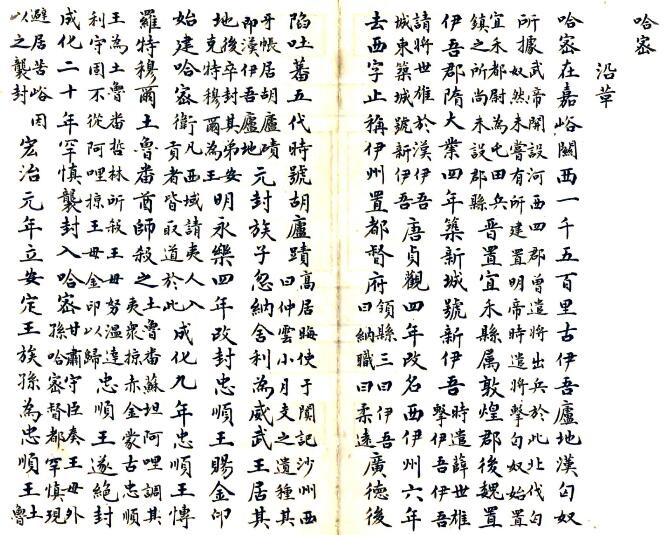 哈密
沿革
哈密在嘉峪關西一千五百里古伊吾廬地漢匈奴
所據
武帝開設河西四郡曾遣將出兵於此北伐匈
奴然未嘗有所建置明帝時遣將擊匈奴始置
宜禾都尉為屯田兵
鎮之所尚未設郡縣
晉置宜禾縣属敦煌郡後魏置
伊吾郡隋大業四年築新城號新伊吾
時遣薛世雄
擊伊吾伊吾
請將世雄於漢伊吾
城東築城號新伊吾
唐貞觀四年改名西伊州六年
去西字止稱伊州置都督府
領縣三曰伊吾
曰納職曰柔遠
廣德後
陷吐蕃五代時號胡廬蹟
高居晦使于闐記沙州西
曰仲雲小月支之遺種其
牙帳居胡廬磧
即漢居廬地
元封族子忽納舍利為威武王居其
地
後卒封其弟安
克特穆爾為王
明永樂四年改封忠順王賜金印
始建哈密衛
凡西域請夷人入
貢者皆取道於此
成化九年忠順王慱
羅特穆爾土魯番酋師殺之
土魯番蘇坦阿哩調其
夷衆掠赤金蒙古忠順
王為土魯番哲林所殺王毋努温達
利守国不從阿哩掠王毋金印以歸
忠順王遂絶封
成化二十年罕慎襲封入哈密
甘肅守臣奏王毋外
孫哈密督都罕慎現
避居苦峪因
以之襲封
宏治元年立安定王族孫為忠順王
土
魯